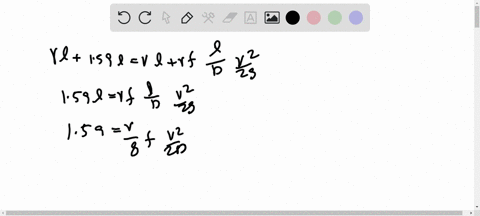 γl + 1.59 l = γl + γf l/D v²/2g
1.59 l = γf l/D v²/2g
1.59 = γ/g f v²/2D